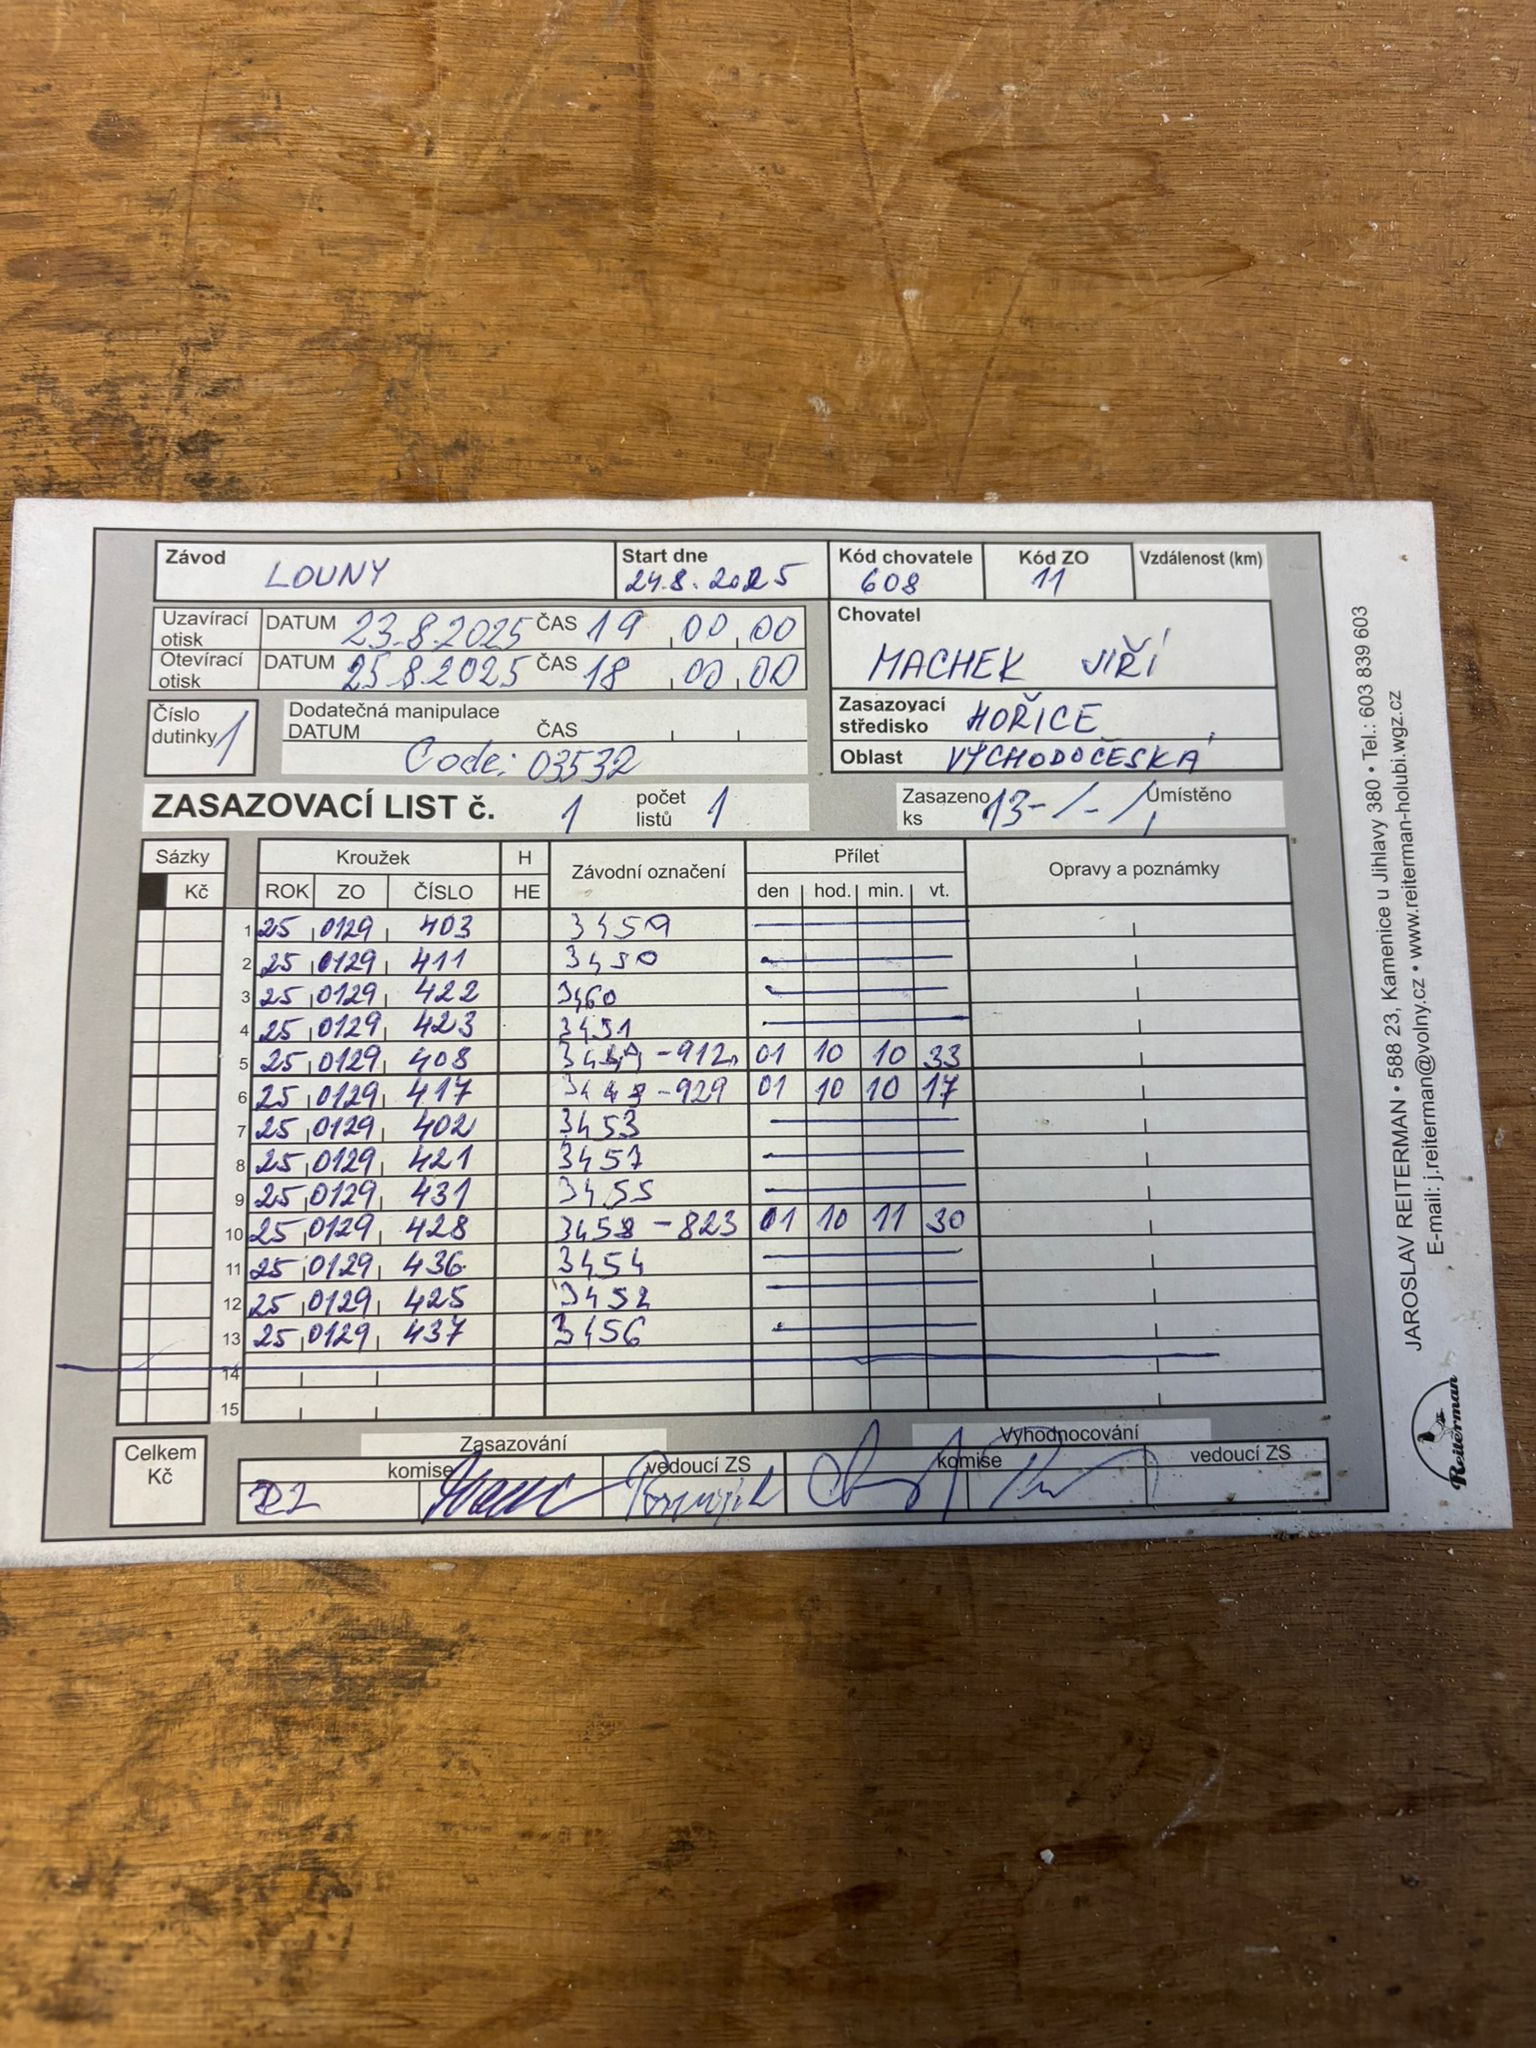 Závod LOUNY Start dne 24.8.2025 Kód chovatele 608 Kód ZO 11 Vzdálenost (km)
Uzavírací otisk DATUM 23.8.2025 ČAS 19 00 00
Otevírací otisk DATUM 25.8.2025 ČAS 18 00 00
Chovatel MACHEK JIŘÍ
Zasazovací středisko HOŘICE
Oblast VÝCHODOČESKÁ
Číslo dutinky 1 Dodatečná manipulace
DATUM ČAS
Code: 03532
ZASAZOVACÍ LIST č. 1 počet listů 1 Zasazeno ks 13-/-/ Umístěno
Sázky Kroužek H Závodní označení Přílet Opravy a poznámky
Kč ROK ZO ČÍSLO HE den hod. min. vt.
1 25 0129 403 3459
2 25 0129 411 3450
3 25 0129 422 3460
4 25 0129 423 3451
5 25 0129 408 -912 01 10 10 33
6 25 0129 417 -929 01 10 10 17
7 25 0129 402 3453
8 25 0129 421 3457
9 25 0129 431 3455
10 25 0129 428 3458 -823 01 10 11 30
11 25 0129 436 3454
12 25 0129 425 3452
13 25 0129 437 3456
14
15
Celkem Kč
Zasazování Vyhodnocování
komise vedoucí ZS komise vedoucí ZS
JAROSLAV REITERMAN • 588 23, Kamenice u Jihlavy 380 • Tel.: 603 839 603
E-mail: j.reiterman@volny.cz • www.reiterman-holubi.wgz.cz
Reiterman